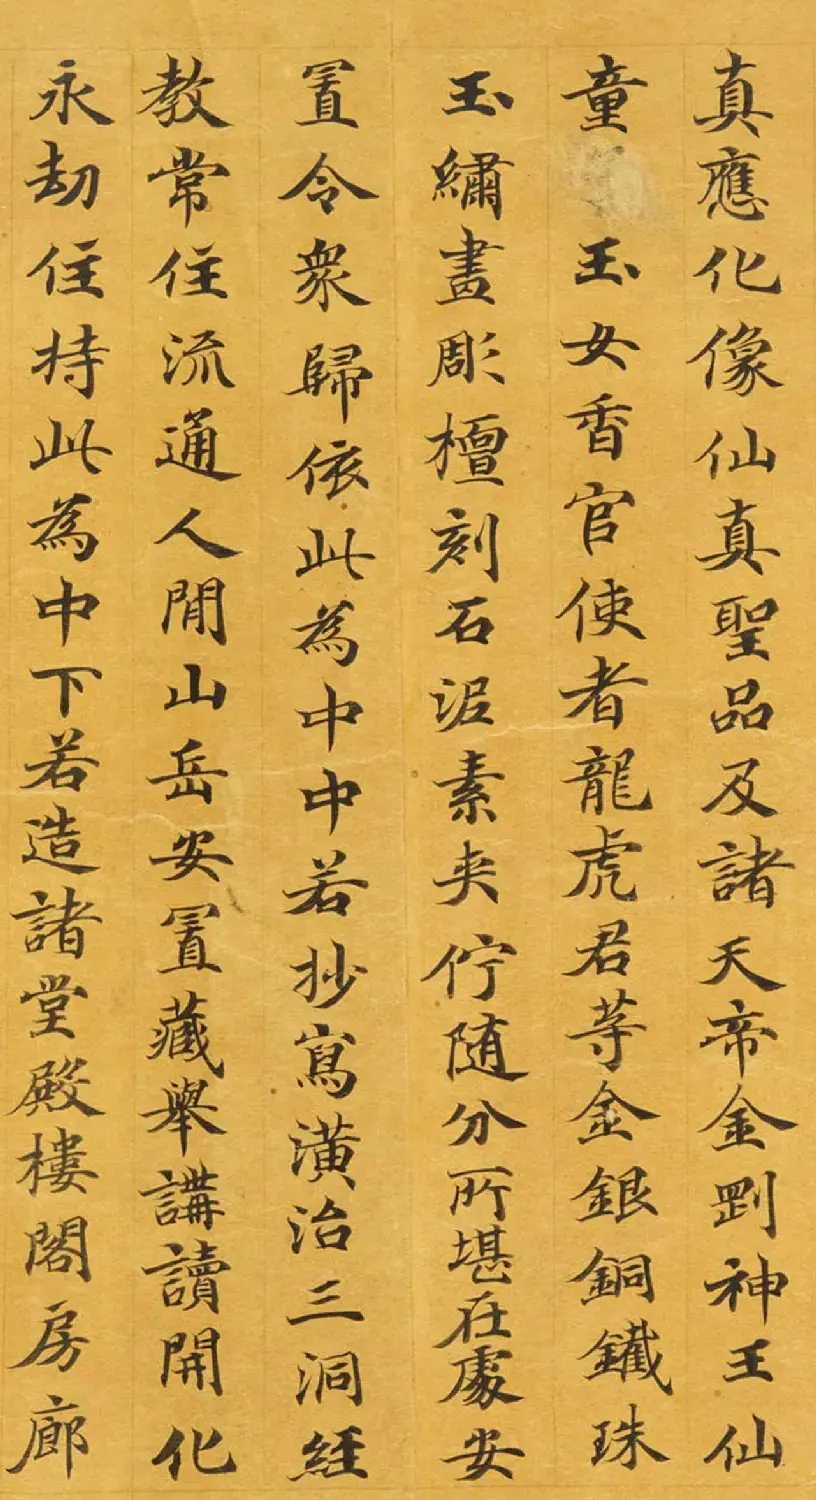 真應化像仙真聖品及諸天帝金剛神王仙
童玉女香官使者龍虎君等金銀銅鐵珠
玉繡畫彫檀刻石泥素夾佇随分所堪在處安
置令衆歸依此為中中若抄寫潢治三洞經
教常住流通人間山岳安置藏舉講讀開化
永劫住持此為中下若造諸堂殿樓閣房廊